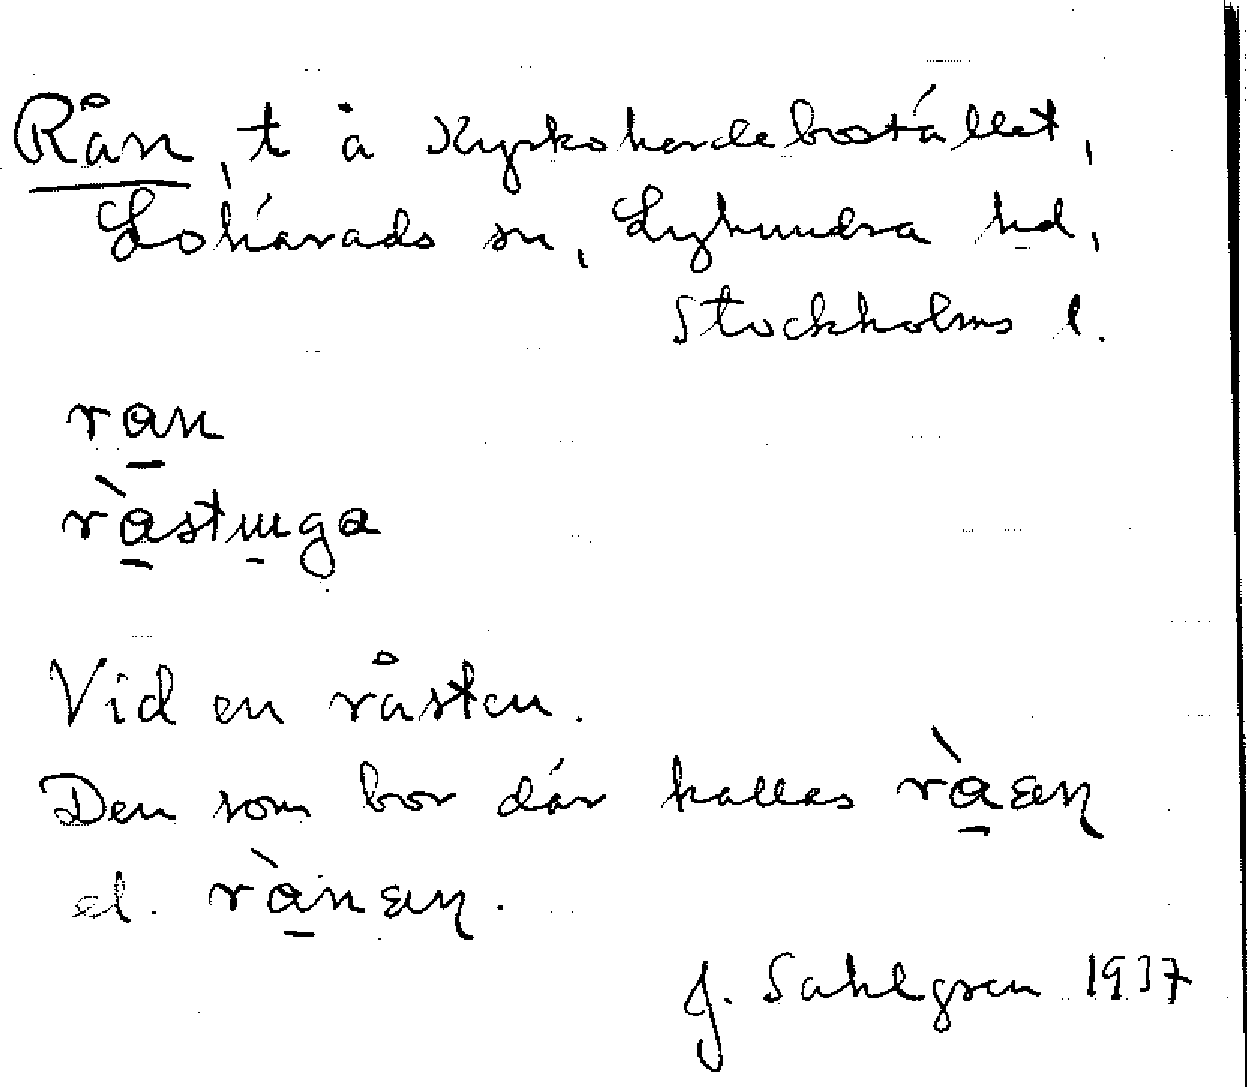 Rån, t å Kyrkoherdebostället,
Lohärads sn, Lyhundra hd,
Stockholms l.
ra̲n
rà̲stu̲ga
Vid en råsten.
Den som bor där kallas rà̲ɛn
el. rà̲nɛn.
J. Sahlgren 1937